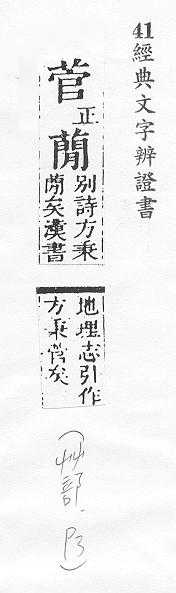 41經典文字辨證書
菅
正
蕑
別詩方秉
蕑矣漢書
地理志引作
方秉菅矣
(艸部.P3)